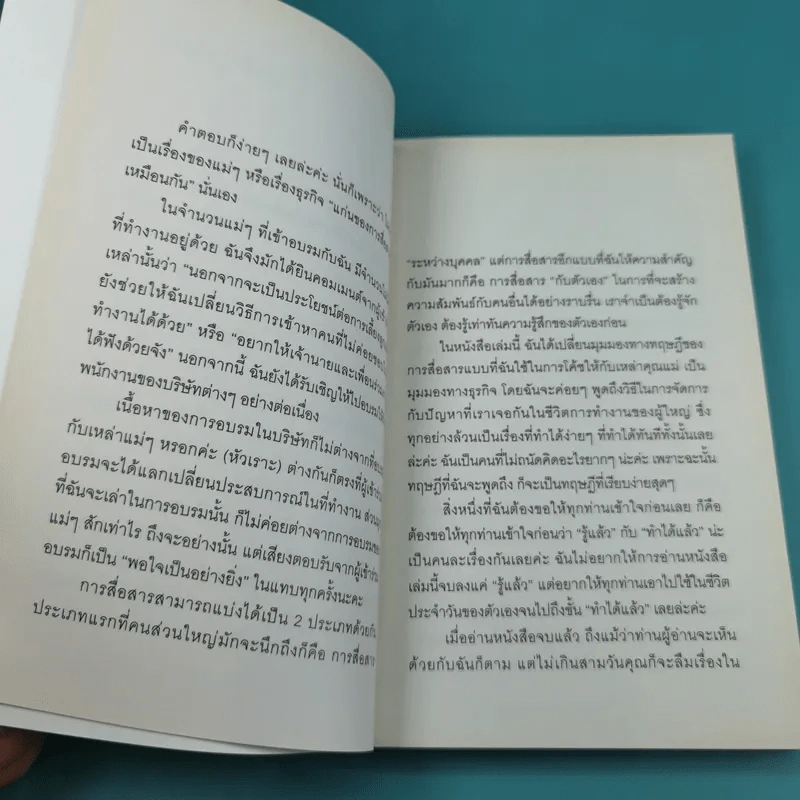 คำตอบก็ง่ายๆ เลยล่ะค่ะ นั่นก็เพราะว่า
เป็นเรื่องของแม่ๆ หรือเรื่องธุรกิจ "แก่นของการสื่อ
เหมือนกัน" นั่นเอง
ในจำนวนแม่ๆ ที่เข้าอบรมกับฉัน มีจำนวน
ที่ทำงานอยู่ด้วย ฉันจึงมักได้ยินคอมเมนต์จากผู้
เหล่านั้นว่า "นอกจากจะเป็นประโยชน์ต่อการเลี้ยงลูก
ยังช่วยให้ฉันเปลี่ยนวิธีการเข้าหาคนที่ไม่ค่อย
ทำงานได้ด้วย" หรือ "อยากให้เจ้านายและเพื่อนร่วม
ได้ฟังด้วยจัง" นอกจากนี้ ฉันยังได้รับเชิญให้ไปอบรม
พนักงานของบริษัทต่างๆ อย่างต่อเนื่อง
เนื้อหาของการอบรมในบริษัทก็ไม่ต่างจากที่
กับเหล่าแม่ๆ หรอกค่ะ (หัวเราะ) ต่างกันก็ตรงที่ผู้เข้า
อบรมจะได้แลกเปลี่ยนประสบการณ์ในที่ทำงาน ส่วน
ที่ฉันจะเล่าในการอบรมนั้น ก็ไม่ค่อยต่างจากการอบรม
แม่ๆ สักเท่าไร ถึงจะอย่างนั้น แต่เสียงตอบรับจากผู้เข้า
อบรมก็เป็น "พอใจเป็นอย่างยิ่ง" ในแทบทุกครั้งนะคะ
การสื่อสารสามารถแบ่งได้เป็น 2 ประเภทด้วยกัน
ประเภทแรกที่คนส่วนใหญ่มักจะนึกถึงก็คือ การสื่อสาร
"ระหว่างบุคคล" แต่การสื่อสารอีกแบบที่ฉันให้ความสำคัญ
กับมันมากก็คือ การสื่อสาร "กับตัวเอง" ในการที่จะสร้าง
ความสัมพันธ์กับคนอื่นได้อย่างราบรื่น เราจำเป็นต้องรู้จัก
ตัวเอง ต้องรู้เท่าทันความรู้สึกของตัวเองก่อน
ในหนังสือเล่มนี้ ฉันได้เปลี่ยนมุมมองทางทฤษฎีของ
การสื่อสารแบบที่ฉันใช้ในการโค้ชให้กับเหล่าคุณแม่ เป็น
มุมมองทางธุรกิจ โดยฉันจะค่อยๆ พูดถึงวิธีในการจัดการ
กับปัญหาที่เราเจอกันในชีวิตการทำงานของผู้ใหญ่ ซึ่ง
ทุกอย่างล้วนเป็นเรื่องที่ทำได้ง่ายๆ ที่ทำได้ทันทีทั้งนั้นเลย
ล่ะค่ะ ฉันเป็นคนที่ไม่ถนัดคิดอะไรยากๆ น่ะค่ะ เพราะฉะนั้น
ทฤษฎีที่ฉันจะพูดถึง ก็จะเป็นทฤษฎีที่เรียบง่ายสุดๆ
สิ่งหนึ่งที่ฉันต้องขอให้ทุกท่านเข้าใจก่อนเลย ก็คือ
ต้องขอให้ทุกท่านเข้าใจก่อนว่า "รู้แล้ว" กับ "ทำได้แล้ว" น่ะ
เป็นคนละเรื่องกันเลยค่ะ ฉันไม่อยากให้การอ่านหนังสือ
เล่มนี้จบลงแค่ "รู้แล้ว" แต่อยากให้ทุกท่านเอาไปใช้ในชีวิต
ประจำวันของตัวเองจนไปถึงขั้น "ทำได้แล้ว" เลยล่ะค่ะ
เมื่ออ่านหนังสือจบแล้ว ถึงแม้ว่าท่านผู้อ่านจะเห็น
ด้วยกับฉันก็ตาม แต่ไม่เกินสามวันคุณก็จะลืมเรื่องใน